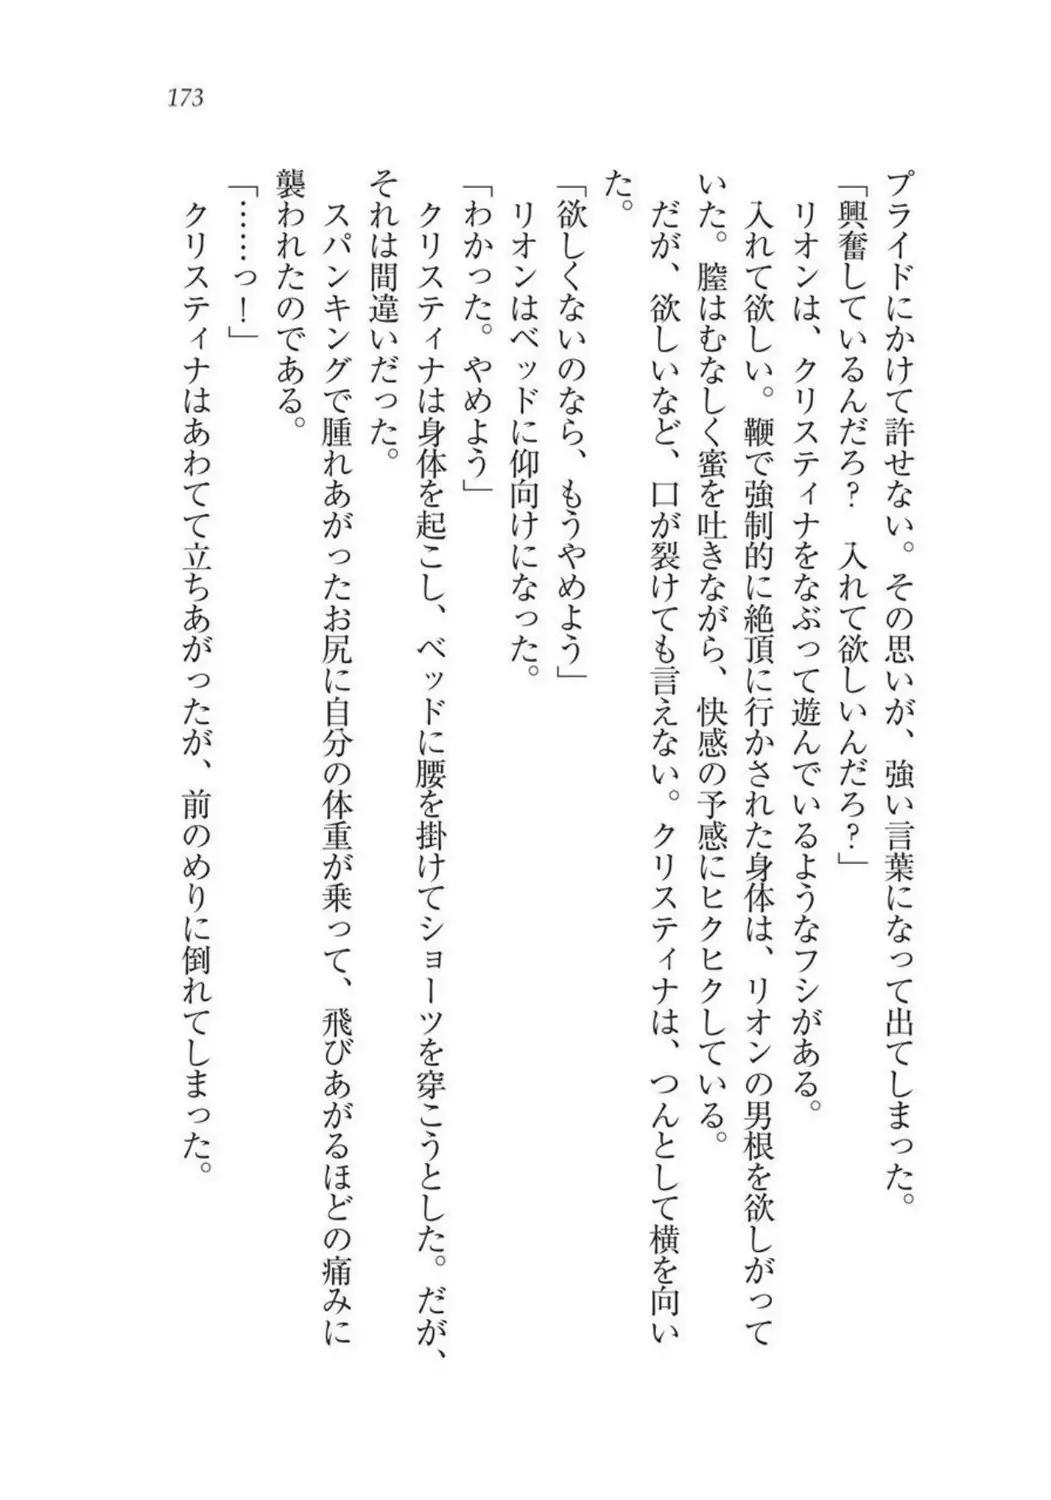 173
プライドにかけて許せない。その思いが、強い言葉になって出てしまった。
「興奮しているんだろ？　入れて欲しいんだろ？」
　リオンは、クリスティナをなぶって遊んでいるようなフシがある。
　入れて欲しい。鞭で強制的に絶頂に行かされた身体は、リオンの男根を欲しがって
いた。膣はむなしく蜜を吐きながら、快感の予感にヒクヒクしている。
　だが、欲しいなど、口が裂けても言えない。クリスティナは、つんとして横を向い
た。
「欲しくないのなら、もうやめよう」
　リオンはベッドに仰向けになった。
「わかった。やめよう」
　クリスティナは身体を起こし、ベッドに腰を掛けてショーツを穿こうとした。だが、
それは間違いだった。
　スパンキングで腫れあがったお尻に自分の体重が乗って、飛びあがるほどの痛みに
襲われたのである。
「……っ！」
　クリスティナはあわてて立ちあがったが、前のめりに倒れてしまった。